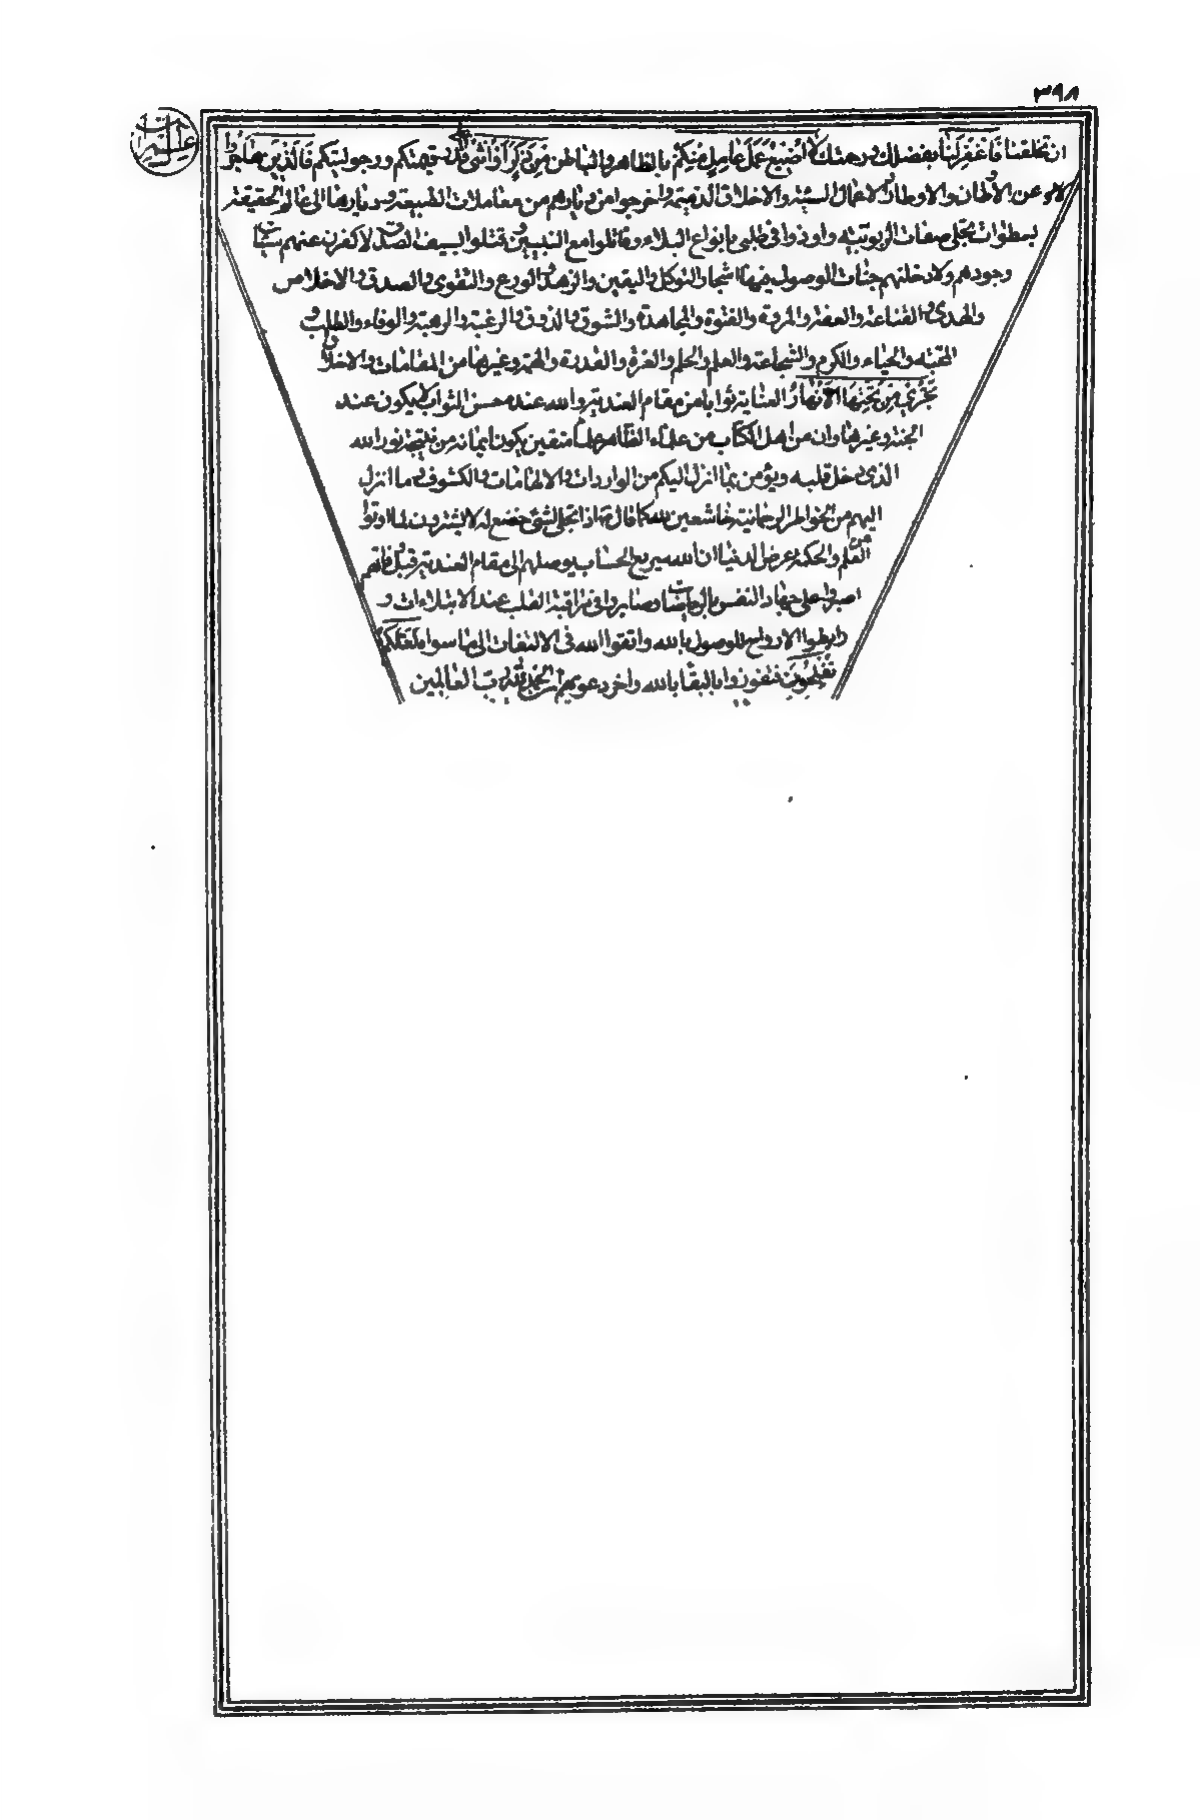 ٣٩٨
ان تخلقنا فَاغفِرلَنَا بفضلك ورحمتك لَا اُضيعُ عَمَلَ عَامِلٍ مِنكُم بالظاهر والباطن مِن ذَكَرٍ اَو اُنثى قيمتكم ورجوليتكم فَالَّذينَ هَاجَروا
عن الاوطان والاوطار الاعمال السيئة والاخلاق الذميمة واخرجوا من ديارهم من معاملات الطبيعة وديارها الى عالم الحقيقة
بسطوات تجلى صفات الربوبية واوذوا فى طلبى بانواع البلاء وقاتلوا مع النفس وقتلوا بسيف الصدق لاكفرن عنهم سيئات
وجودهم ولادخلنهم جنات الوصول فيها اشجار التوكل واليقين والزهد والورع والتقوى والصدق والاخلاص
والهدى والقناعة والعفة والمروة والفتوة والمجاهدة والشوق والذوق والرغبة والرهبة والوفاء والطلب
والمحبة والحياء والكرم والشجاعة والعلم والحلم والعزة والقدرة والهمة وغيرها من المقامات والاخلاق
تَجرى مِن تَحتِهَا الاَنهَارُ العناية ثوابا من مقام العندية والله عنده حسن الثواب لا يكون عند
الجنة وغيرها وان من اهل الكتاب من علماء الظاهر علماء متقين يكون ايمانه من نتيجة نور الله
الذى دخل قلبه ويؤمن بما انزل اليكم من الواردات والالهامات والكشوف وما انزل
اليهم من الخواطر الرحمانية خاشعين لله كما قال اذا تجلى لشئ خضع له لا يشترون بما اوتوا
من العلم والحكمة عرض الدنيا ان الله سريع الحساب يوصلهم الى مقام العندية قبل
اصبروا على جهاد النفس بالرياضات وصابروا فى مراقبة القلب عند الابتلاءات و
رابطوا الارواح للوصول بالله واتقوا الله فى الالتفات الى ما سواه لعلكم
تُفلِحُونَ فتفوزوا بالبقاء بالله واخر دعويهم ان الحمد لله رب العالمين